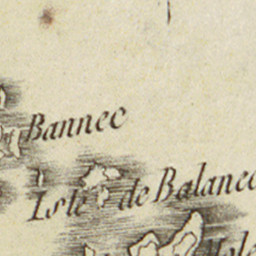 Bannec
Isle de Balanec